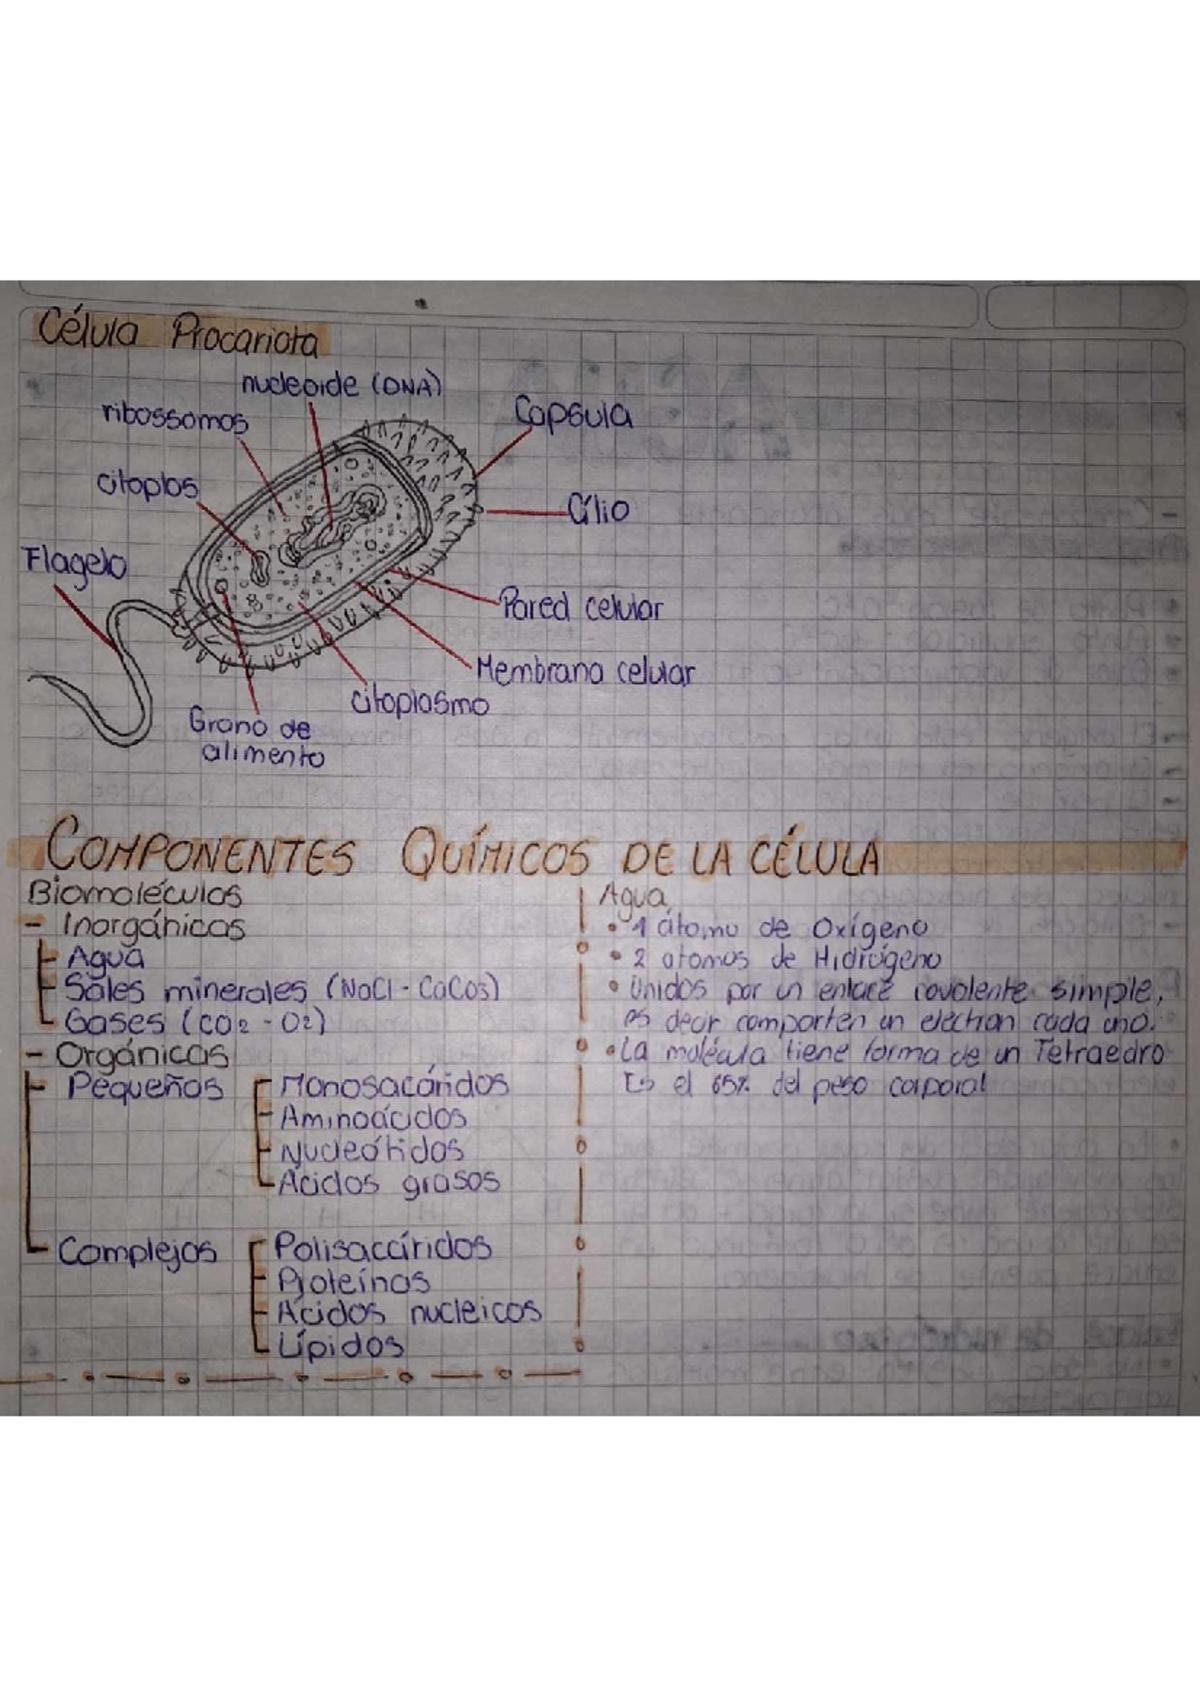 Célula Procariota
nucleoide (DNA)
ribossomos
Capsula
citoplos
Cílio
Flagelo
Pared celular
Membrana celular
citoplasmo
Grano de
alimento
COMPONENTES QUÍMICOS DE LA CÉLULA
Biomoléculas
- Inorgánicas
Agua
Sales minerales (NaCl - CaCO3)
Gases (CO2 - O2)
- Orgánicas
Pequeños
Monosacáridos
Aminoácidos
Nucleótidos
Ácidos grasos
Complejos
Polisacáridos
Proteínas
Ácidos nucleicos
Lípidos
Agua
• 1 átomo de Oxígeno
• 2 atomos de Hidrógeno
• Unidos por un enlace covalente simple,
es decir comparten un electron cada uno.
• La molécula tiene forma de un Tetraedro
Es el 65% del peso corporal